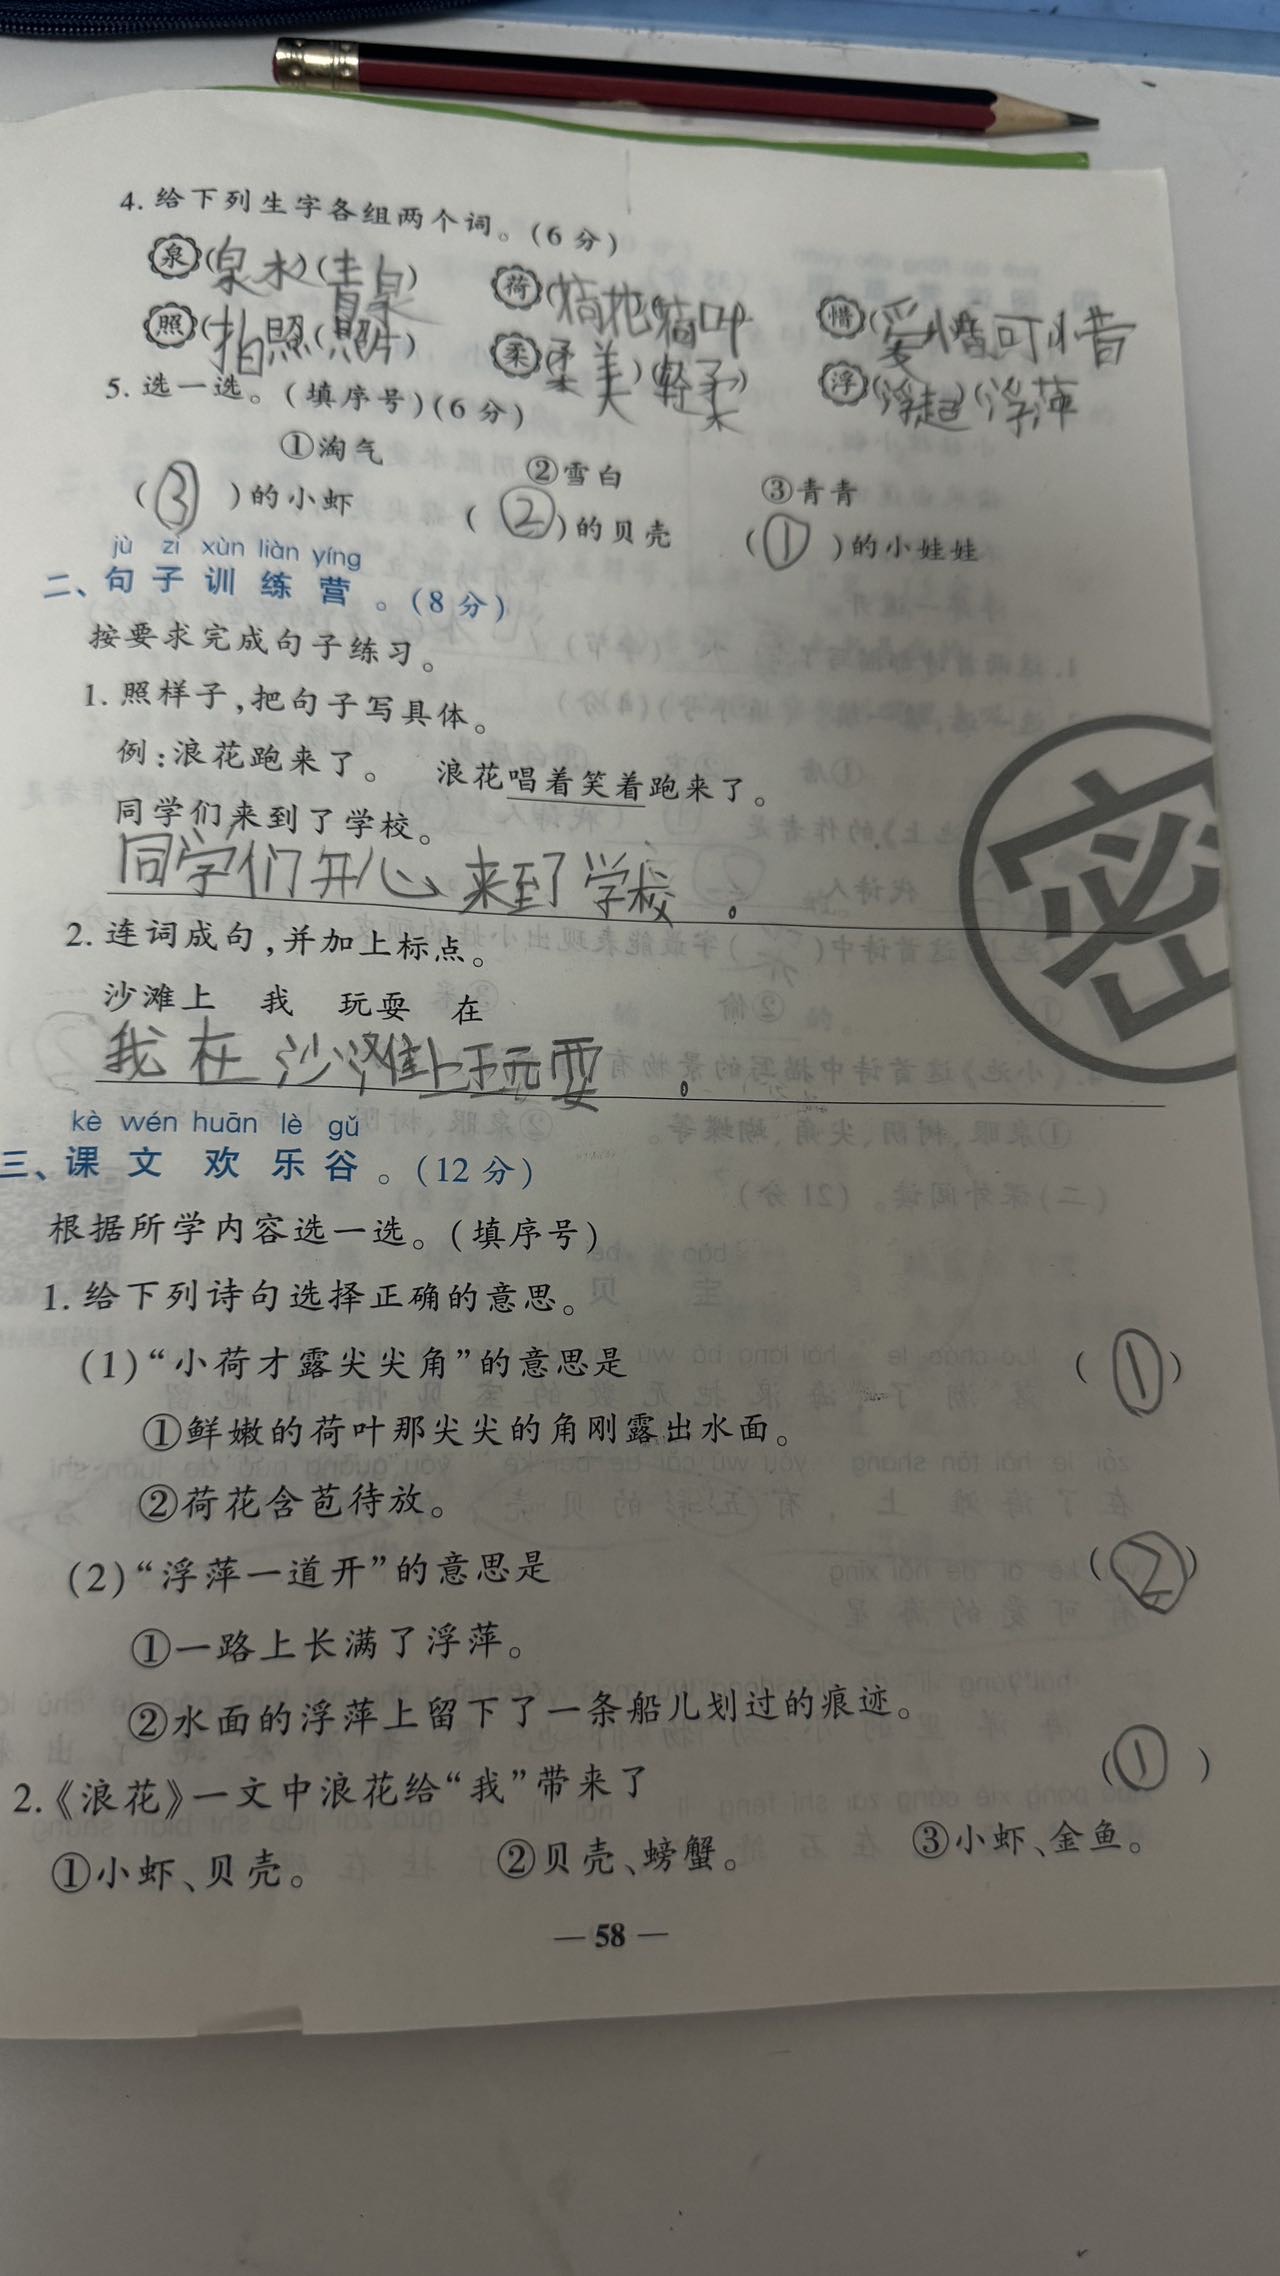 4. 给下列生字各组两个词。(6分)
泉(泉水)(青泉) 荷(荷花)(荷叶) 惜(爱惜)(可惜)
照(拍照)(照片) 柔(柔美)(轻柔) 浮(浮起)(浮萍)
5. 选一选。(填序号)(6分)
①淘气 ②雪白 ③青青
(③)的小虾 (②)的贝壳 (①)的小娃娃
jù zi xùn liàn yíng
二、句子训练营。(8分)
按要求完成句子练习。
1. 照样子,把句子写具体。
例:浪花跑来了。 浪花唱着笑着跑来了。
同学们来到了学校。
同学们开心来到了学校。
2. 连词成句,并加上标点。
沙滩上 我 玩耍 在
我在沙滩上玩耍。
kè wén huān lè gǔ
三、课文欢乐谷。(12分)
根据所学内容选一选。(填序号)
1. 给下列诗句选择正确的意思。
(1)“小荷才露尖尖角”的意思是 (①)
①鲜嫩的荷叶那尖尖的角刚露出水面。
②荷花含苞待放。
(2)“浮萍一道开”的意思是 (②)
①一路上长满了浮萍。
②水面的浮萍上留下了一条船儿划过的痕迹。
2.《浪花》一文中浪花给“我”带来了 (①)
①小虾、贝壳。 ②贝壳、螃蟹。 ③小虾、金鱼。
— 58 —
密